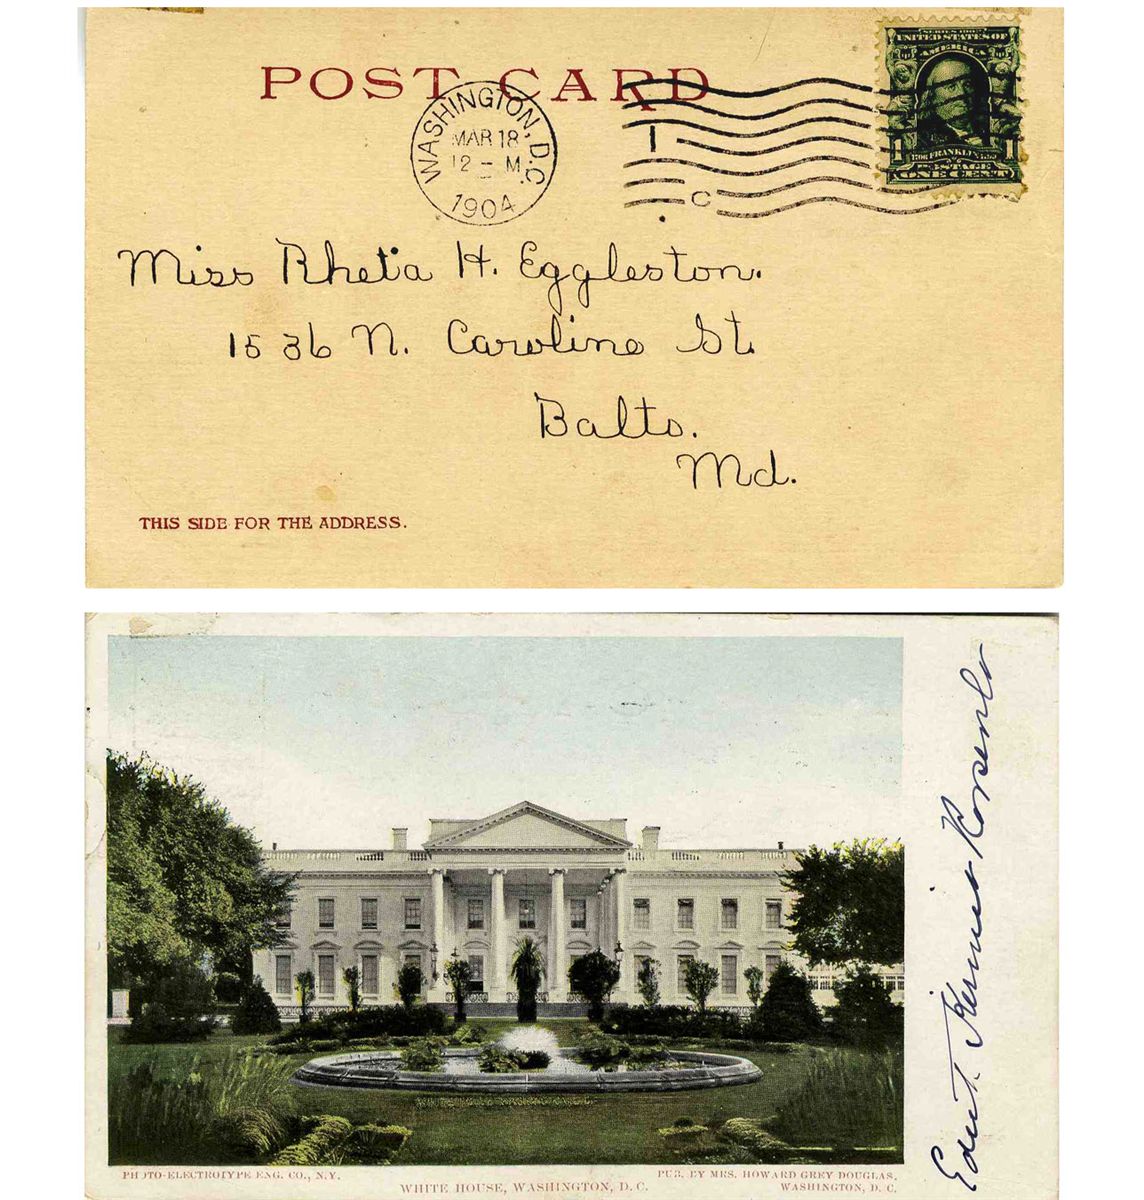 POST CARD
WASHINGTON, D.C.
MAR 18
12 - M
1904
1
C
SERIES 1902
UNITED STATES OF
AMERICA
1 1706 FRANKLIN 1790 1
POSTAGE
ONE CENT
Miss Rheta H. Eggleston.
1536 N. Caroline St.
Balto.
Md.
THIS SIDE FOR THE ADDRESS.
PHOTO-ELECTROTYPE ENG. CO., N.Y.
PUB. BY MRS. HOWARD GREY DOUGLAS,
WASHINGTON, D. C.
WHITE HOUSE, WASHINGTON, D. C.